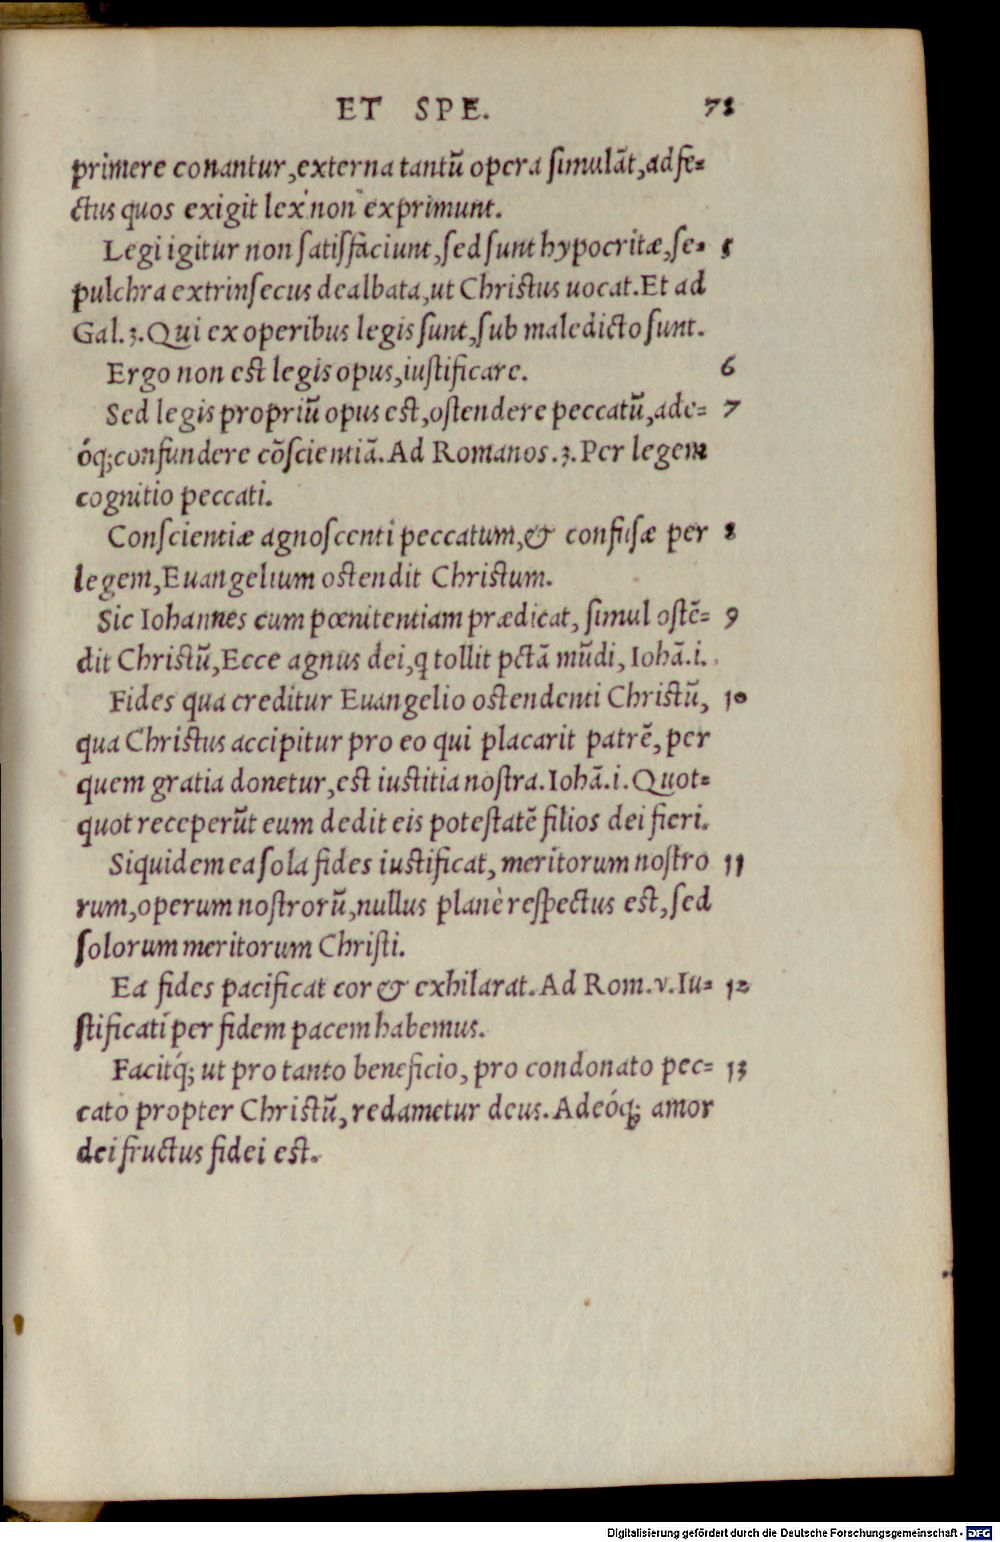 ET SPE. 78
primere conantur, externa tantũ opera ſimulãt, adfe⸗
ctus quos exigit lex non exprimunt.
Legi igitur non ſatiſfaciunt, ſed ſunt hypocritæ, ſe⸗ 5
pulchra extrinſecus dealbata, ut Chriſtus uocat. Et ad
Gal. 3. Qui ex operibus legis ſunt, ſub maledicto ſunt.
Ergo non eſt legis opus, iuſtificare. 6
Sed legis propriũ opus eſt, oſtendere peccatũ, ade⸗ 7
óq; confundere cõſcientiã. Ad Romanos. 3. Per legem
cognitio peccati.
Conſcientiæ agnoſcenti peccatum, & confuſæ per 8
legem, Euangelium oſtendit Chriſtum.
Sic Iohannes cum pœnitentiam prædicat, ſimul oſtẽ⸗ 9
dit Chriſtũ, Ecce agnus dei, q tollit pctã mũdi, Iohã. i.
Fides qua creditur Euangelio oſtendenti Chriſtũ, 10
qua Chriſtus accipitur pro eo qui placarit patrẽ, per
quem gratia donetur, eſt iuſtitia noſtra. Iohã. i. Quot⸗
quot receperũt eum dedit eis poteſtatẽ filios dei fieri.
Siquidem ea ſola fides iuſtificat, meritorum noſtro 11
rum, operum noſtrorũ, nullus planè reſpectus eſt, ſed
ſolorum meritorum Chriſti.
Ea fides pacificat cor & exhilarat. Ad Rom. v. Iu⸗ 12
ſtificati per fidem pacem habemus.
Facitq́; ut pro tanto beneficio, pro condonato pec⸗ 13
cato propter Chriſtũ, redametur deus. Adeóq; amor
dei fructus fidei eſt.
Digitalisierung gefördert durch die Deutsche Forschungsgemeinschaft - DFG